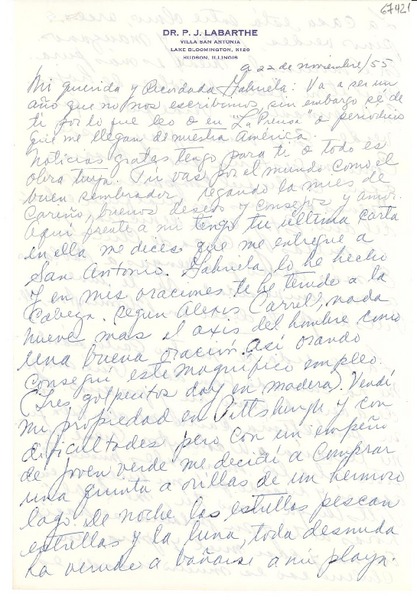 67421
DR. P. J. LABARTHE
VILLA SAN ANTONIA
LAKE BLOOMINGTON, R108
HUDSON, ILLINOIS
a 22 de noviembre/55
Mi querida y Recordada Gabriela: Va a ser un
año que no nos escribimos, sin embargo sé de
ti por lo que leo o en "La Prensa" o periodicos
que me llegan de nuestra América.
Noticias gratas tengo para ti o todo es
obra tuya. Tu vas por el mundo como el
buen sembrador regando la mies de
Cariño, buenos deseos y consejos y Amor.
Aqui frente a mi tengo tu última carta
en ella me dices que me entregue a
San Antonio. Gabriela, lo he hecho
y en mis oraciones te he tenido a la
Cabeza. Segun Alexis Carrel, nada
mueve mas el axis del hombre como
una buena oración. Así orando
consegui este magnifico empleo.
(Tres golpecitos doy en madera). Vendí
mi propiedad en Pittsburgh y con
dificultades pero con un empeño
de joven verde me decidí a comprar
una quinta a orillas de un hermoso
lago. De noche las estrellas pescan
estrellas y la luna, toda desnuda
ha venido a bañarse a mi playa.